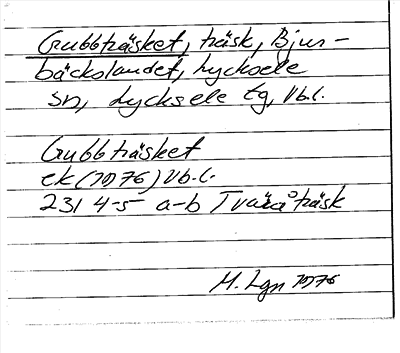 Gubbträsket, träsk, Bjur-
bäckslandet, Lycksele
sn, Lycksele tg, Vb.l.
Gubbträsket
ek (1976) Vb.l.
23I 4-5 a-b Tväråträsk
M. Lgn 1976